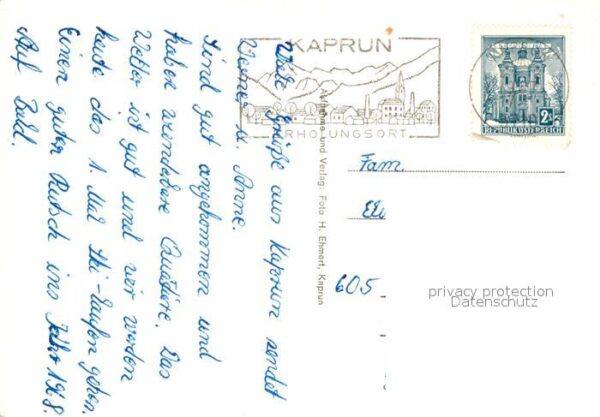 Viele Grüße aus Kaprun sendet
Werner u. Anne.
Sind gut angekommen und
haben wunderbare Quatiere. Das
Wetter ist gut und wir werden
heute das 1. Mal Ski-laufen gehen.
Einen guten Rutsch ins Jahr 1968.
Auf Bald.
KAPRUN
ERHOLUNGSORT
2S
REPUBLIK ÖSTERREICH
Aufnahme und Verlag: Foto H. Ehmert, Kaprun
Fam.
605
privacy protection
Datenschutz